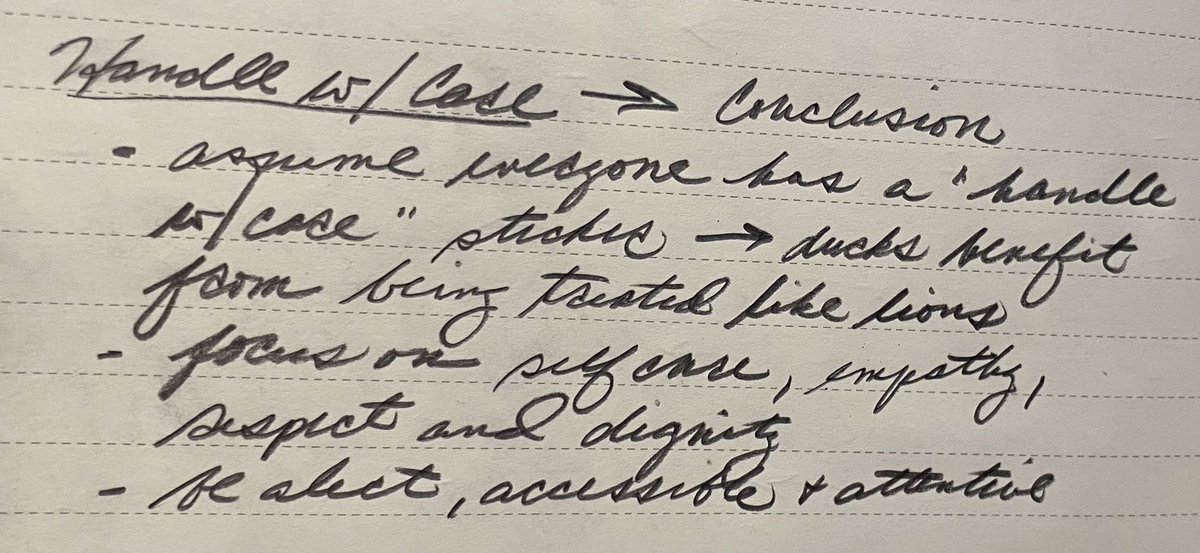 Handle w/ Care → Conclusion
- assume everyone has a "handle
w/care" sticker → ducks benefit
from being treated like lions
- focus on self care, empathy,
respect and dignity
- be alert, accessible + attentive